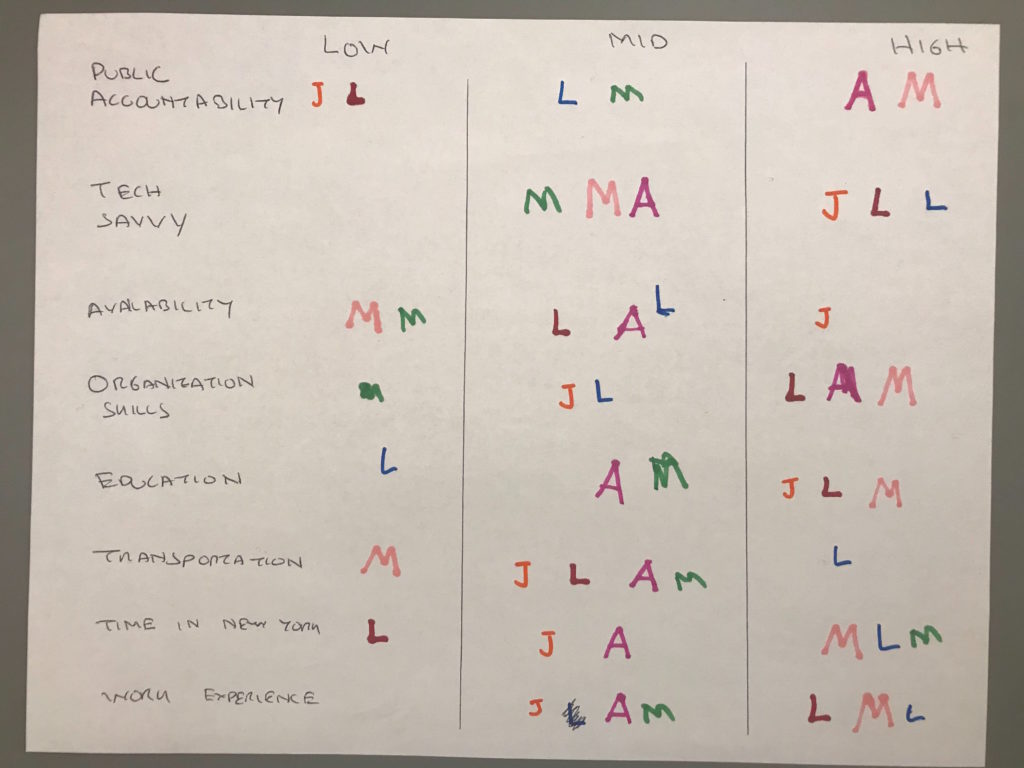 LOW MID HIGH
PUBLIC
ACCOUNTABILITY J L L M A M
TECH
SAVVY M M A J L L
AVALABILITY M M L A L J
ORGANIZATION
SKILLS M J L L A M
EDUCATION L A M J L M
TRANSPORTATION M J L A M L
TIME IN NEW YORK L J A M L M
WORK EXPERIENCE J A M L M L